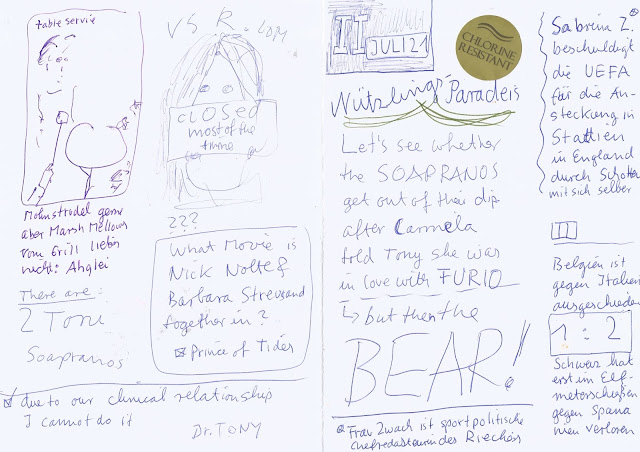 table service
Mohnstrudel gerne
aber Marsh Mellows
vom Grill lieber
nicht: Ahglei
There are:
2 Toni
Soapranos
VS R.com
CLOSED
most of the
time
???
What Movie is
Nick Nolte &
Barbara Streusand
together in?
Prince of Tides
due to our clinical relationship
I cannot do it
Dr. TONY
II
JULI 21
CHLORINE
RESISTANT
Nützlings Paradeis
Let's see whether
the SOAPRANOS
get out of their dip
after Carmela
told Tony she was
in love with FURIO
↳ but then the
BEAR!
Frau Zwach ist sportpolitische
Chefredasteurin des Riechers
Sabrina Z.
beschuldigt
die UEFA
für die An-
steckung in
Stattien
in England
durch Schotten
mit sich selber
II
Belgien ist
gegen Italien
ausgeschieden
1:2
Schweiz hat
erst im Elf-
meterschießen
gegen Spana
men verloren